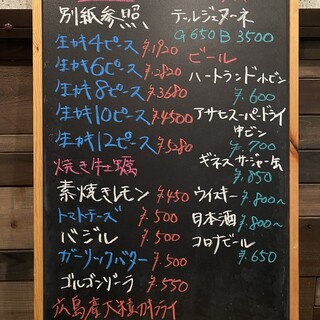 別紙参照
生カキ4ピース ¥1920
生カキ6ピース ¥2820
生カキ8ピース ¥3680
生カキ10ピース ¥4500
生カキ12ピース ¥5280
焼き牡蠣
素焼きレモン ¥450
トマトチーズ ¥.500
バジル ¥.500
ガーリックバター ¥.500
ゴルゴンゾーラ ¥.550
広島産大粒カキフライ
G 650 B 3500
ビール
ハートランド小ビン
¥.600
アサヒスーパードライ
中ビン
¥.700
ギネス
¥.850
ウイスキー ¥800〜
日本酒 ¥.800〜
コロナビール
¥.650